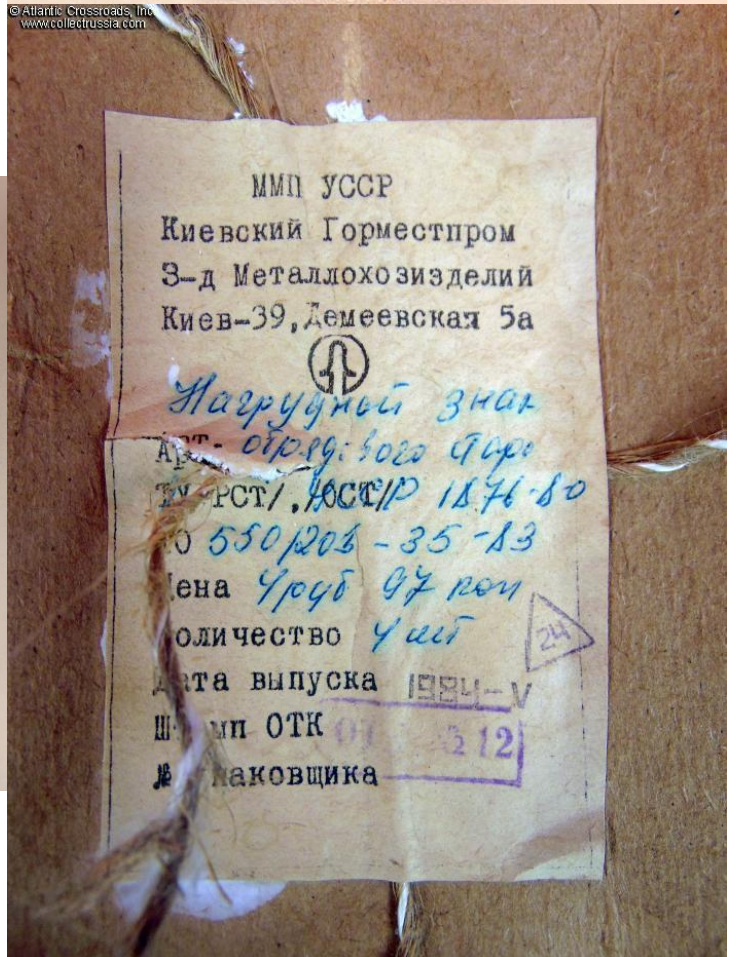 © Atlantic Crossroads, Inc
www.collectrussia.com
ММП УССР
Киевский Горместпром
З-д Металлохозизделий
Киев-39, Демеевская 5а
Нагрудной знак
Арт.
РСТ/,/ОСТ/ 1876-80
35-83
Цена 97 коп
Количество шт
24
Дата выпуска 1984-V
Штамп ОТК 12
№ упаковщика